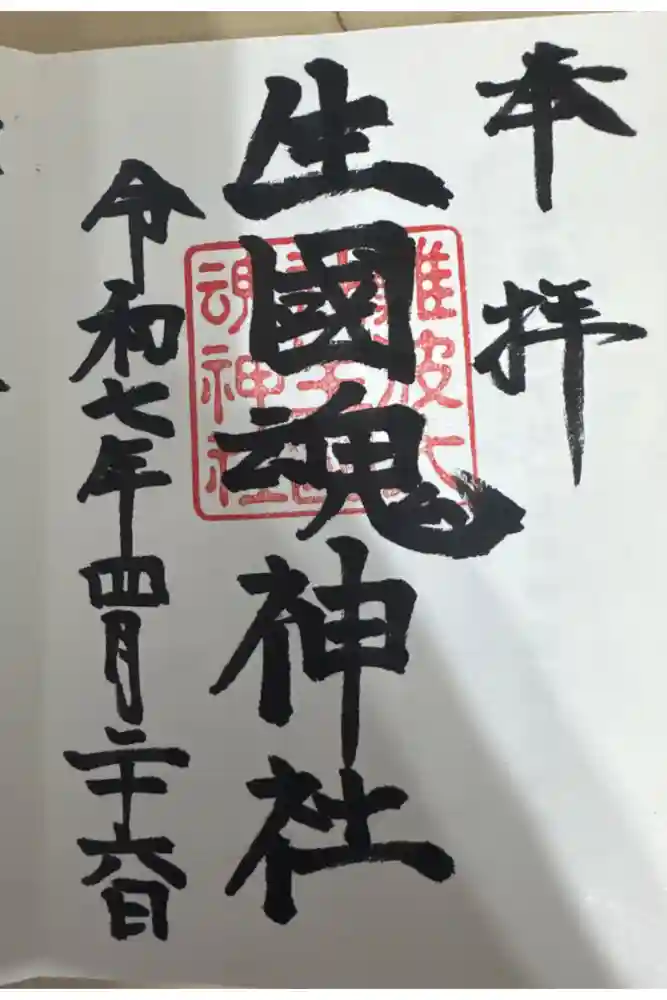 奉拝
生國魂神社
令和七年四月二十六日
難波大
魂神社